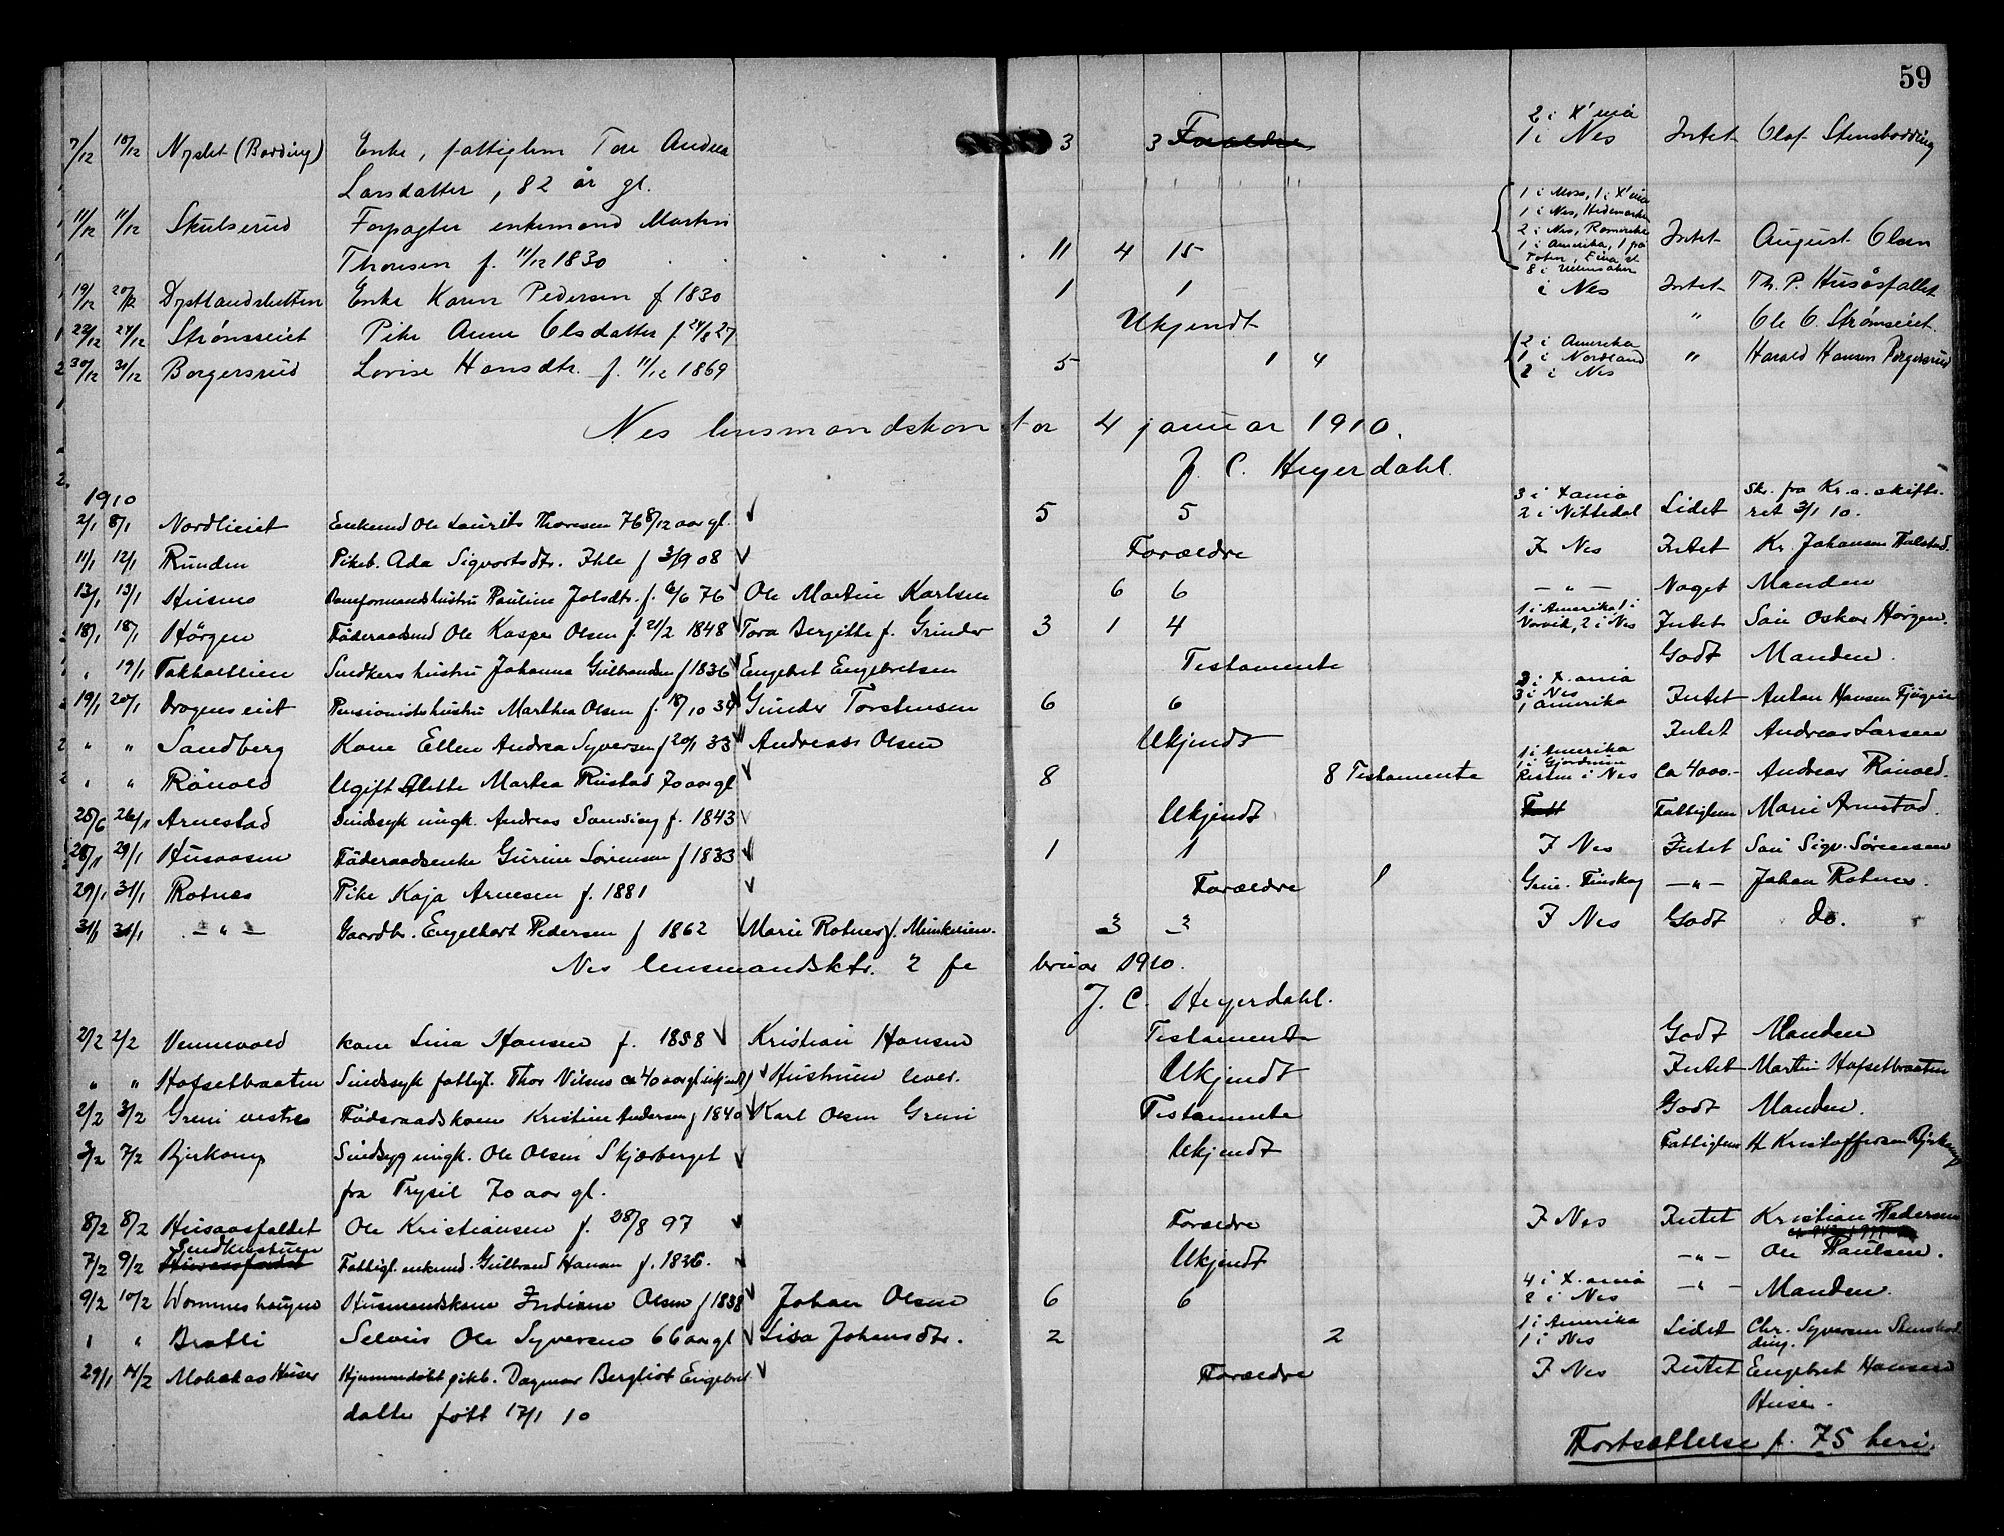 59
7/12 10/12 Nyslet (Bodding) Enke, fattiglem Tore Andrea 3 3 Forældre 2 i X'nia 1 i Nes Intet Olaf Stensbodding
Larsdatter, 82 år gl.
11/12 11/12 Skulserud Forpagter enkemand Martin 1 i Moss, 1 i X'nia 1 i Nes, Hedemarken
Thoresen f. 11/12 1830 11 4 15 2 i Nes, Romerike 1 i Amerika, 1 på Toten, 8 i Ullensaker Intet August Olsen
19/12 20/12 Dystlandshutten Enke Karen Pedersen f 1830 1 1 i Nes Intet Th. P. Husåsfallet
22/12 24/12 Strømseiet Pike Anne Olsdatter f 24/8 27 Ukjendt " Ole O. Strømseiet.
30/12 31/12 Borgersrud Lovise Hansdtr. f. 11/12 1869 5 1 4 2 i Amerika 1 i Nordland 2 i Nes " Harald Hansen Borgersrud
Nes lensmandskontor 4 januar 1910.
J. C. Heyerdahl.
1910
2/1 8/1 Nordlieiet Enkemd Ole Laurits Thoresen 76 8/12 aar gl. 5 5 3 i Xania 2 i Nittedal Lidet Skr. fra Kr.a. skifteret 3/1 10.
11/1 12/1 Runden Pikeb. Ada Sigvartsdtr. Ihle f 3/9 08 Forældre I Nes Intet Kr. Johansen Halstad.
13/1 13/1 Husmo Pauline Jolsdtr. f. 6/6 76 Ole Martin Karlsen 6 6 — " — Noget Manden
18/1 18/1 Hörgen Föderaadsmd Ole Kasper Olsen f. 21/2 1848 Tora Bergitte f. Grinder 3 1 4 1 i Amerika 1 i Narvik, 2 i Nes Intet Søn Oskar Hörgen.
" 19/1 Takholtlien Snedkers hustru Johanna Gulbrandsen f 1836 Engebret Engebretsen Testamente Godt Manden.
19/1 20/1 Drogenseiet Pensionists hustru Marthea Olsen f. 18/10 39 Gunder Torstensen 6 6 2 i X.ania 3 i Nes 1 Amerika Intet Anton Hansen
" " Sandberg Kone Ellen Andrea Syversen f 20/1 33 Andreas Olsen Ukjendt Intet Andreas Larsen
" " Rånold Ugift Olette Martea Rustad 70 aar gl 8 8 Testamente 1 i Amerika 1 i Gjerdrum Resten i Nes Ca 4000.- Andreas Rånold.
25/6 26/1 Arnestad Sindssyk ungk. Andreas Sandvig f. 1843 Ukjendt Fattiglem Marie Arnestad.
28/1 29/1 Husaasen Föderaadsenke Gurine Sörensen f 1833 1 1 I Nes Intet Søn Sigv. Sörensen
29/1 31/1 Rotnes Pike Kaja Arnesen f. 1881 Forældre 1 Grue. Finskog — " — Johan Rotnes.
31/1 31/1 — " — Gaardbr. Engelhart Pedersen f 1862 Marie Rotnes f. Munkerien. 3 3 I Nes Godt do.
Nes lensmandsktr. 2 februar 1910.
J. C. Heyerdahl.
2/2 2/2 Vennevold Kone Lina Hansen f. 1858 Kristian Hansen Testamente Godt Manden
" " Hofsetbraaten Sindssyk fattigl. Thor Nilsen ca 40 aar gl. Hustruen lever. Ukjendt Intet Martin Hofsetbraaten
2/2 3/2 Greni vestre Föderaadskone Kristine Andersen f 1840 Karl Olsen Greni Testamente Godt Manden.
3/2 7/2 Bjerkang Sindsyg ungk. Ole Olsen Skjærberget Ukjendt Fattiglem H. Kristoffersen Bjerkang
fra Trysil 70 aar gl.
8/2 8/2 Husaasfaldet Ole Kristiansen f. 28/8 97 Forældre I Nes Intet Kristian Pedersen
7/2 9/2 Snedkerstuen Fattigl. enkemd. Gulbrand Hansen f. 1836. Ukjendt — " — Ole Paulsen.
9/2 10/2 Wormeshaugen Husmandskone Indiane Olsen f 1838 Johan Olsen 6 6 4 i X.ania 2 i Nes — " — Manden.
" " Bratli Selveier Ole Syversen 66 aar gl Lisa Johansdtr. 2 2 1 i Amerika 1 i Nes Lidet Chr. Syversen Stensbodding.
29/1 14/2 Huser Hjemmedöbt pikeb. Dagmar Bergliot Engebret Forældre I Nes Intet Engebret Hansen
datter født 17/1 10 Huser.
Fortsættelse f. 75 heri.